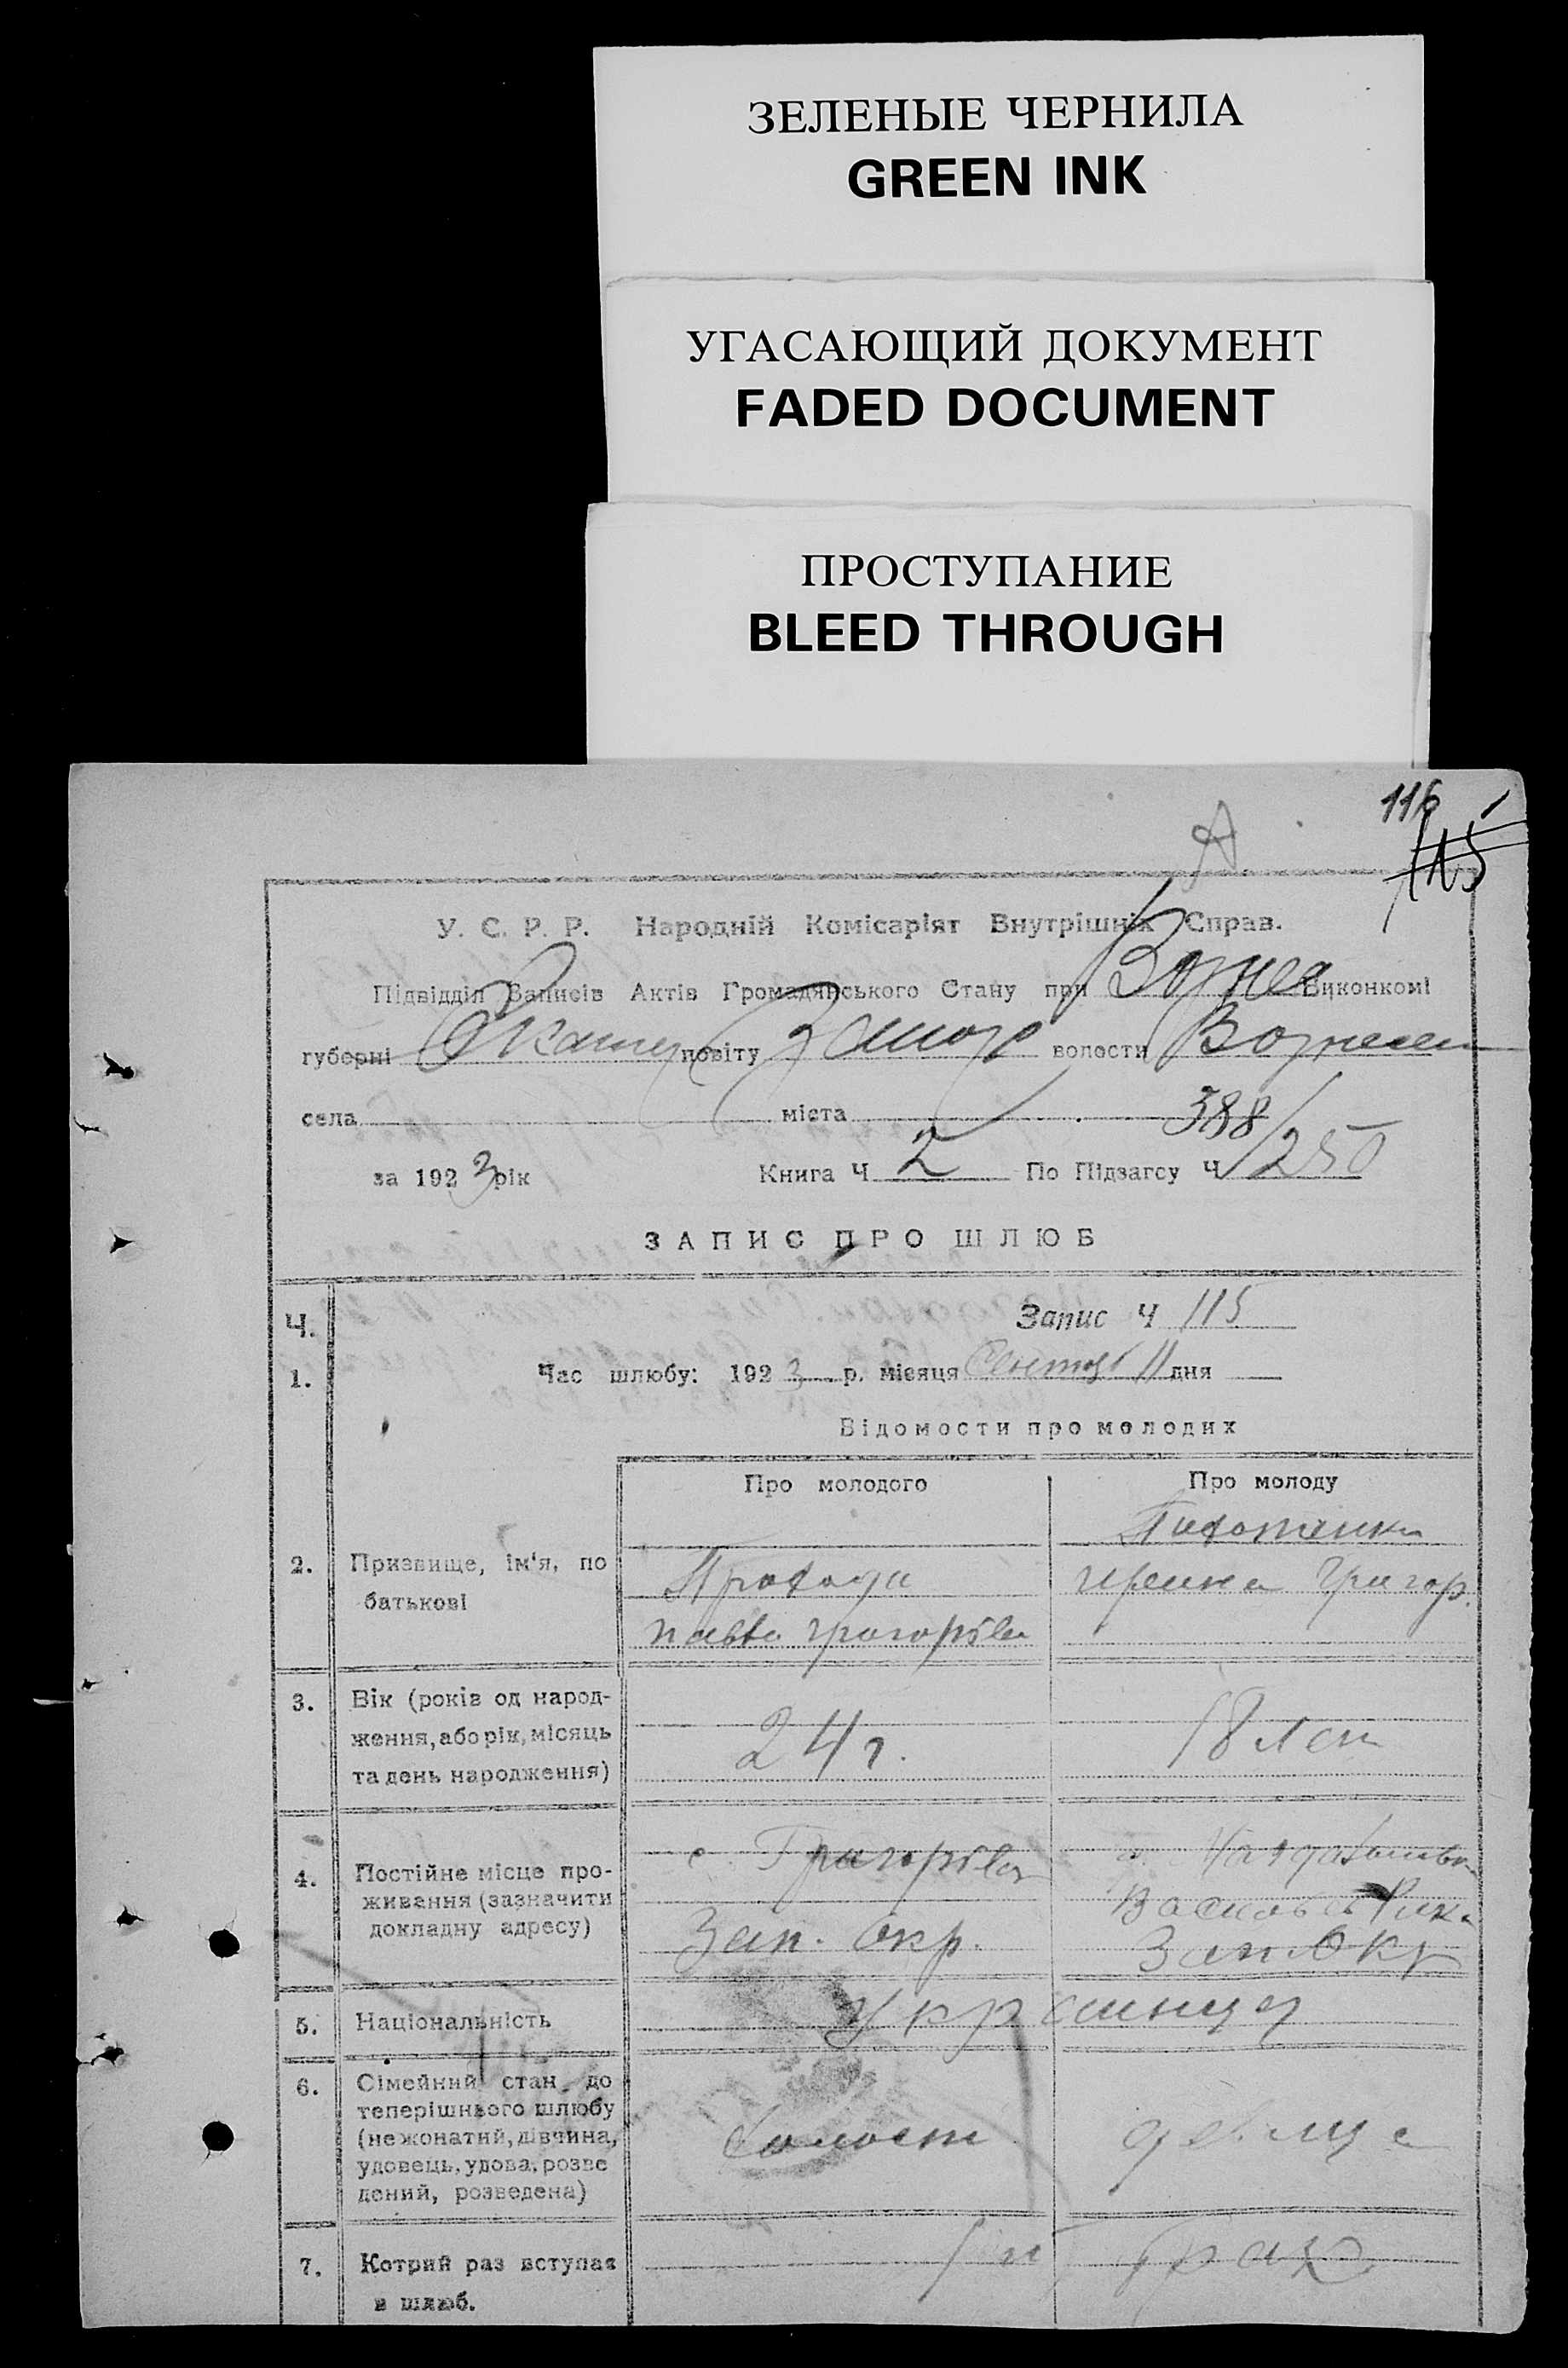 ЗЕЛЕНЫЕ ЧЕРНИЛА
GREEN INK
УГАСАЮЩИЙ ДОКУМЕНТ
FADED DOCUMENT
ПРОСТУПАНИЕ
BLEED THROUGH
116
115
У. С. Р. Р. Народній Комісаріят Внутрішніх Справ.
Підвідділ Записів Актів Громадянського Стану при Виконкомі
губерні повіту Запор волости Вознесен
села міста 388
за 1923 рік Книга Ч 2 По Підзагсу Ч 250
ЗАПИС ПРО ШЛЮБ
Ч. Запис Ч 115
1. Час шлюбу: 1923 р. місяця 11 дня
Відомости про молодих
Про молодого Про молоду
2. Призвище, ім'я, по батькові
Григор.
3. Вік (років од народ-
ження, або рік, місяць
та день народження)
24 г. 18 лет
4. Постійне місце про-
живання (зазначити
докладну адресу)
с. Григорівка
Зап. Окр. Зап. Окр
5. Національність
украинцы
6. Сімейний стан до
теперішнього шлюбу
(нежонатий, дівчина,
удовець, удова, розве
дений, розведена)
холост девица
7. Котрий раз вступає
в шлюб.
1й брак